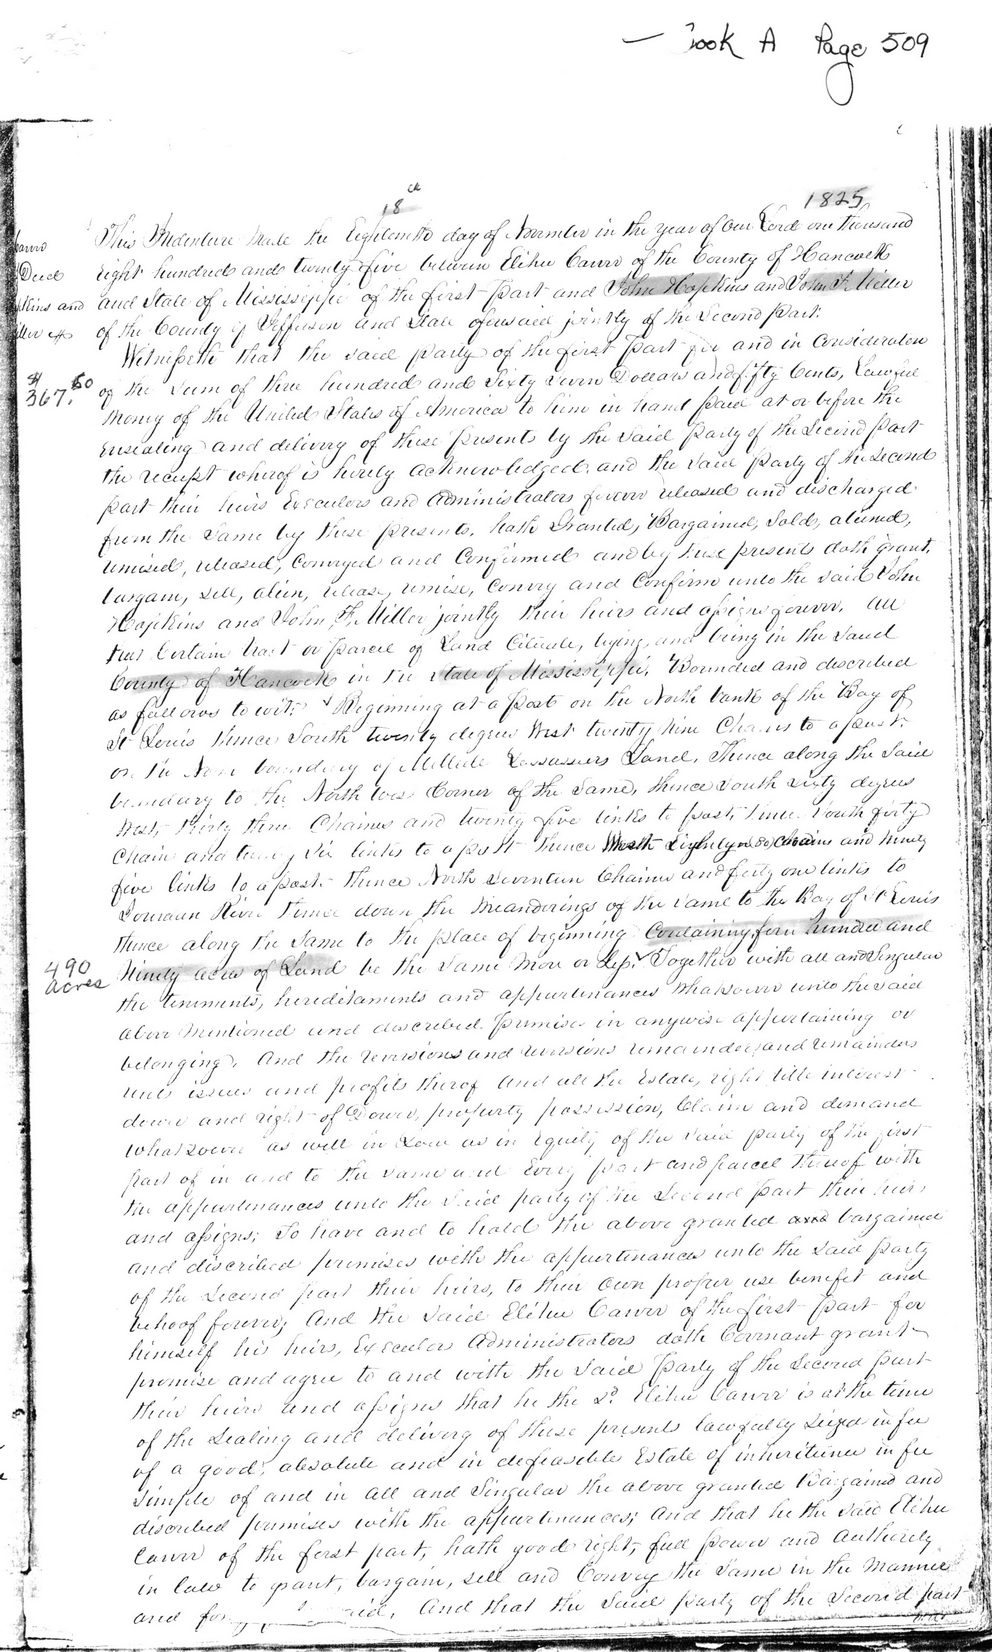 Book A Page 509
18th
1825
This Indenture made the Eighteenth day of November in the year of our Lord one thousand
Carver
eight hundred and twenty five between Elihu Carver of the County of Hancock
Deed
and State of Mississippi of the first part and John Hopkins and John F. Miller
Hopkins and
of the County of Jefferson and State aforesaid jointly of the Second Part.
Miller
Witnesseth that the said party of the first part for and in Consideration
$367.50
of the Sum of three hundred and Sixty Seven Dollars and fifty Cents, Lawful
money of the United States of America to him in hand paid at or before the
Ensealing and delivery of these presents by the said party of the Second part
the receipt whereof is hereby acknowledged, and the said party of the Second
part their heirs Executors and Administrators forever released and discharged
from the Same by these presents, hath Granted, Bargained, Sold, aliened,
remised, released, Conveyed and Confirmed and by these presents doth grant,
bargain, sell, alien, release, remise, Convey and Confirm unto the said John
Hopkins and John F. Miller jointly their heirs and assigns forever, All
that Certain tract or parcel of Land Cituate, lying, and being in the said
County of Hancock in the State of Mississippi, Bounded and described
as follows to wit; Beginning at a post on the North bank of the Bay of
St Louis thence South twenty degrees West twenty nine Chains to a post
on the boundary of Land, Thence along the Said
boundary to the North west Corner of the Same, thence South sixty degrees
West, thirty three Chaines and twenty five links to post; thence South forty
Chain and twenty six links to a post thence West Eighty chains and ninety
five links to a post thence North Seventeen Chains and forty one links to
River thence down the meanderings of the same to the Bay of St Louis
thence along the Same to the place of beginning Containing four hundred and
490
acres
Ninety acres of Land be the Same more or Less, Together with all and Singular
the tenements, hereditaments and appurtenances whatsoever unto the said
above mentioned and described Premises in anywise appertaining or
belonging, And the reversion and reversions remainder and remainders
rents issues and profits thereof And all the Estate, right title interest
dower and right of Dower, property possession, Claim and demand
whatsoever as well in Law as in equity of the said party of the first
part of in and to the same and Every part and parcel thereof with
the appurtenances unto the said party of the Second part their heirs
and assigns; To have and to hold the above granted and bargained
and discribed premises with the appurtenances unto the said party
of the second part their heirs, to their own proper use benefit and
behoof forever; And the said Elihu Carver of the first part for
himself his heirs, Executors Administrators doth Covenant grant
promise and agree to and with the said Party of the Second part
their heirs and assigns that he the sd. Elihu Carver is at the time
of the Sealing and delivery of these presents lawfully Seized in fee
of a good, absolute and in defeasible Estate of inheritence in fee
simple of and in all and Singular the above granted Bargained and
discribed premises with the appurtenances; And that he the said Elihu
Carver of the first part, hath good right, full power and authority
in law to grant, bargain, sell and Convey the same in the manner
and, And that the said party of the Second part